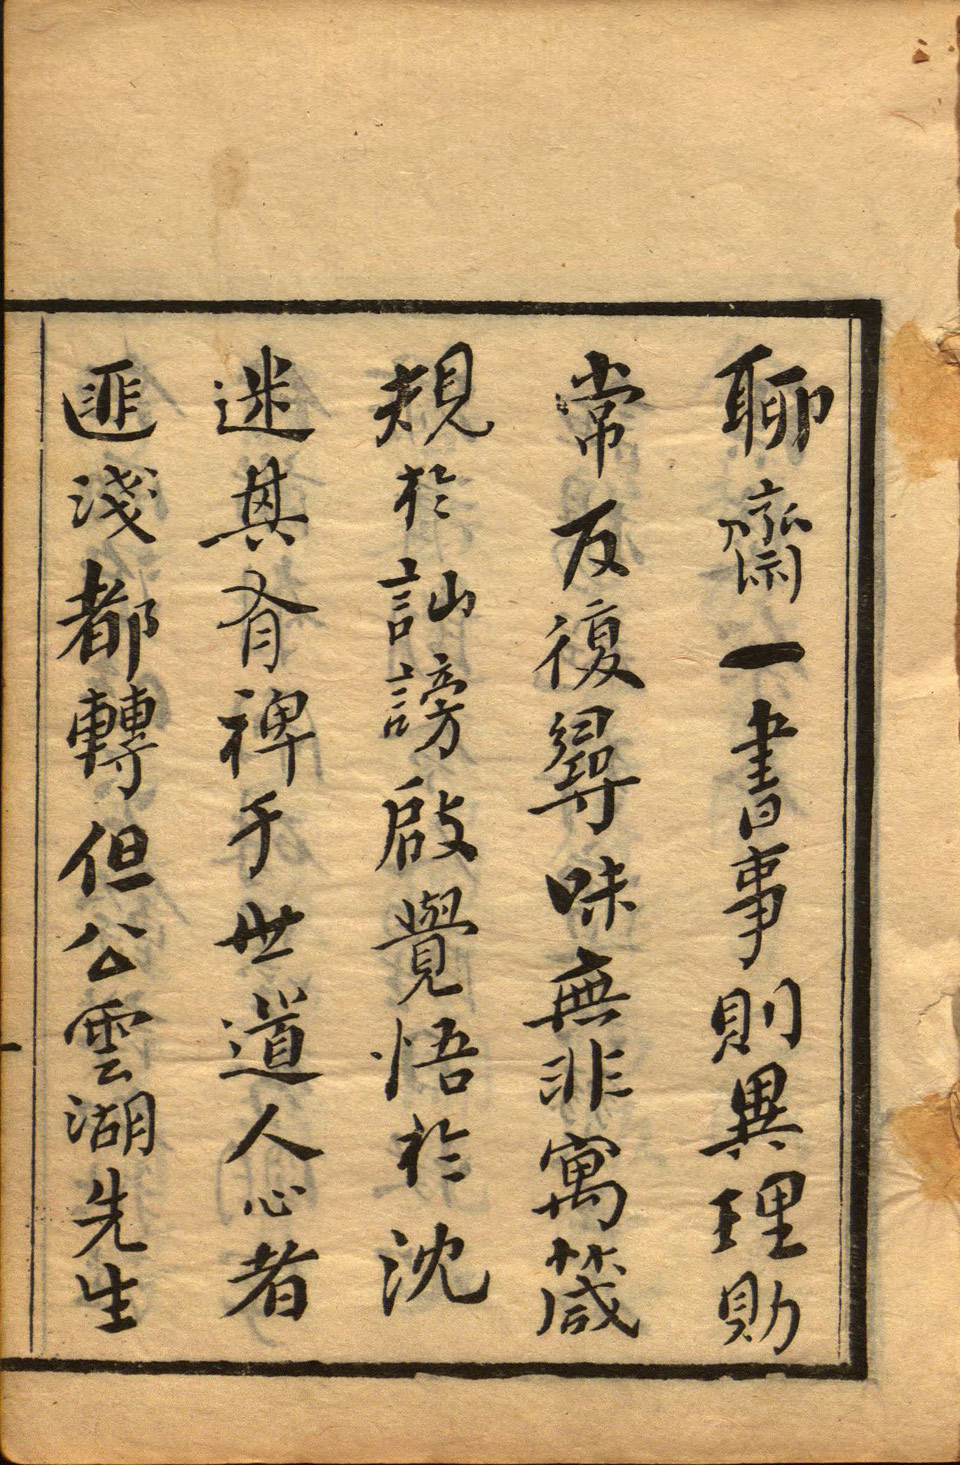 聊齋一書事則異理則
常反復尋味無非寓箴
規於訕謗啟覺悟於沈
迷其有裨于世道人心者
匪淺都轉但公雲湖先生